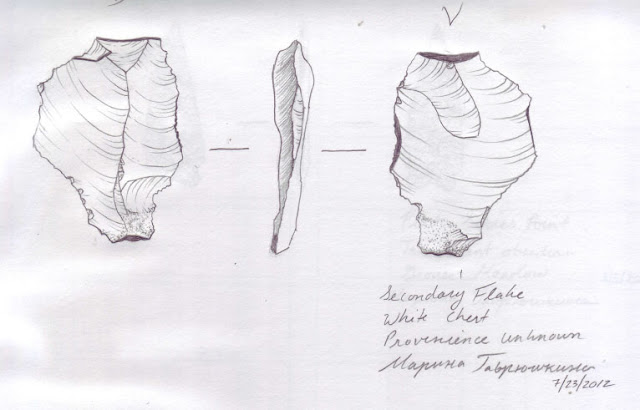 V
Secondary Flake
White Chert
Provenience unknown
Марина Гаврюшкина
7/23/2012